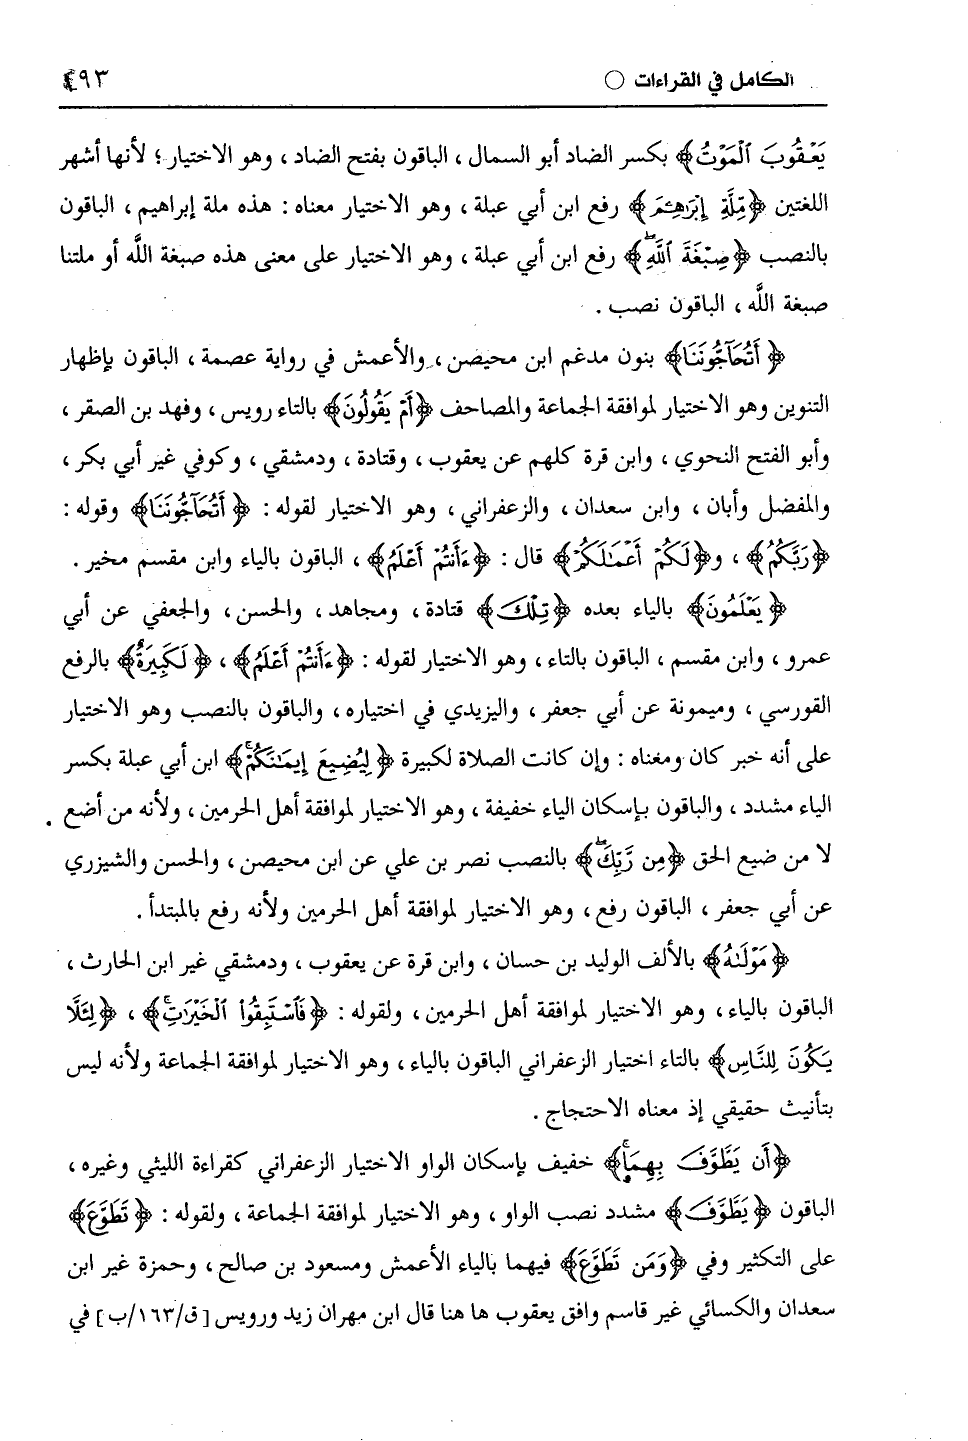 الكامل في القراءات ○ ٤٩٣
يَعْقُوبَ ٱلْمَوْتُ﴾ بكسر الضاد أبو السمال ، الباقون بفتح الضاد ، وهو الاختيار ؛ لأنها أشهر
اللغتين ﴿مِّلَّةِ إِبْرَٰهِـۧمَ﴾ رفع ابن أبي عبلة ، وهو الاختيار معناه : هذه ملة إبراهيم ، الباقون
بالنصب ﴿صِبْغَةَ ٱللَّهِۖ﴾ رفع ابن أبي عبلة ، وهو الاختيار على معنى هذه صبغة اللَّه أو ملتنا
صبغة اللَّه ، الباقون نصب .
﴿أَتُحَآجُّونَنَا﴾ بنون مدغم ابن محيصن ، والأعمش في رواية عصمة ، الباقون بإظهار
التنوين وهو الاختيار لموافقة الجماعة والمصاحف ﴿أَمْ يَقُولُونَ﴾ بالتاء رويس ، وفهد بن الصقر ،
وأبو الفتح النحوي ، وابن قرة كلهم عن يعقوب ، وقتادة ، ودمشقي ، وكوفي غير أبي بكر ،
والمفضل وأبان ، وابن سعدان ، والزعفراني ، وهو الاختيار لقوله : ﴿أَتُحَآجُّونَنَا﴾ وقوله :
﴿رَبُّكُمْ﴾ ، و﴿لَكُمْ أَعْمَٰلَكُمْ﴾ قال : ﴿ءَأَنتُمْ أَعْلَمُ﴾ ، الباقون بالياء وابن مقسم مخير .
﴿يَعْلَمُونَ﴾ بالياء بعده ﴿تِلْكَ﴾ قتادة ، ومجاهد ، والحسن ، والجعفي عن أبي
عمرو ، وابن مقسم ، الباقون بالتاء ، وهو الاختيار لقوله : ﴿ءَأَنتُمْ أَعْلَمُ﴾ ، ﴿لَكَبِيرَةٌ﴾ بالرفع
القورسي ، وميمونة عن أبي جعفر ، واليزيدي في اختياره ، والباقون بالنصب وهو الاختيار
على أنه خبر كان ومعناه : وإن كانت الصلاة لكبيرة ﴿لِيُضِيعَ إِيمَٰنَكُمْۚ﴾ ابن أبي عبلة بكسر
الياء مشدد ، والباقون بإسكان الياء خفيفة ، وهو الاختيار لموافقة أهل الحرمين ، ولأنه من أضع .
لا من ضيع الحق ﴿مِن رَّبِّكَۖ﴾ بالنصب نصر بن علي عن ابن محيصن ، والحسن والشيزري
عن أبي جعفر ، الباقون رفع ، وهو الاختيار لموافقة أهل الحرمين ولأنه رفع بالمبتدأ .
﴿مَوْلَىٰهُ﴾ بالألف الوليد بن حسان ، وابن قرة عن يعقوب ، ودمشقي غير ابن الحارث ،
الباقون بالياء ، وهو الاختيار لموافقة أهل الحرمين ، ولقوله : ﴿فَٱسْتَبِقُوا۟ ٱلْخَيْرَٰتِۚ﴾ ، ﴿لِئَلَّا
يَكُونَ لِلنَّاسِ﴾ بالتاء اختيار الزعفراني الباقون بالياء ، وهو الاختيار لموافقة الجماعة ولأنه ليس
بتأنيث حقيقي إذ معناه الاحتجاج .
﴿أَن يَطَّوَّفَ بِهِمَاۚ﴾ خفيف بإسكان الواو الاختيار الزعفراني كقراءة الليثي وغيره ،
الباقون ﴿يَطَّوَّفَ﴾ مشدد نصب الواو ، وهو الاختيار لموافقة الجماعة ، ولقوله : ﴿تَطَوَّعَ﴾
على التكثير وفي ﴿وَمَن تَطَوَّعَ﴾ فيهما بالياء الأعمش ومسعود بن صالح ، وحمزة غير ابن
سعدان والكسائي غير قاسم وافق يعقوب ها هنا قال ابن مهران زيد ورويس [ق/١٦٣/ب] في